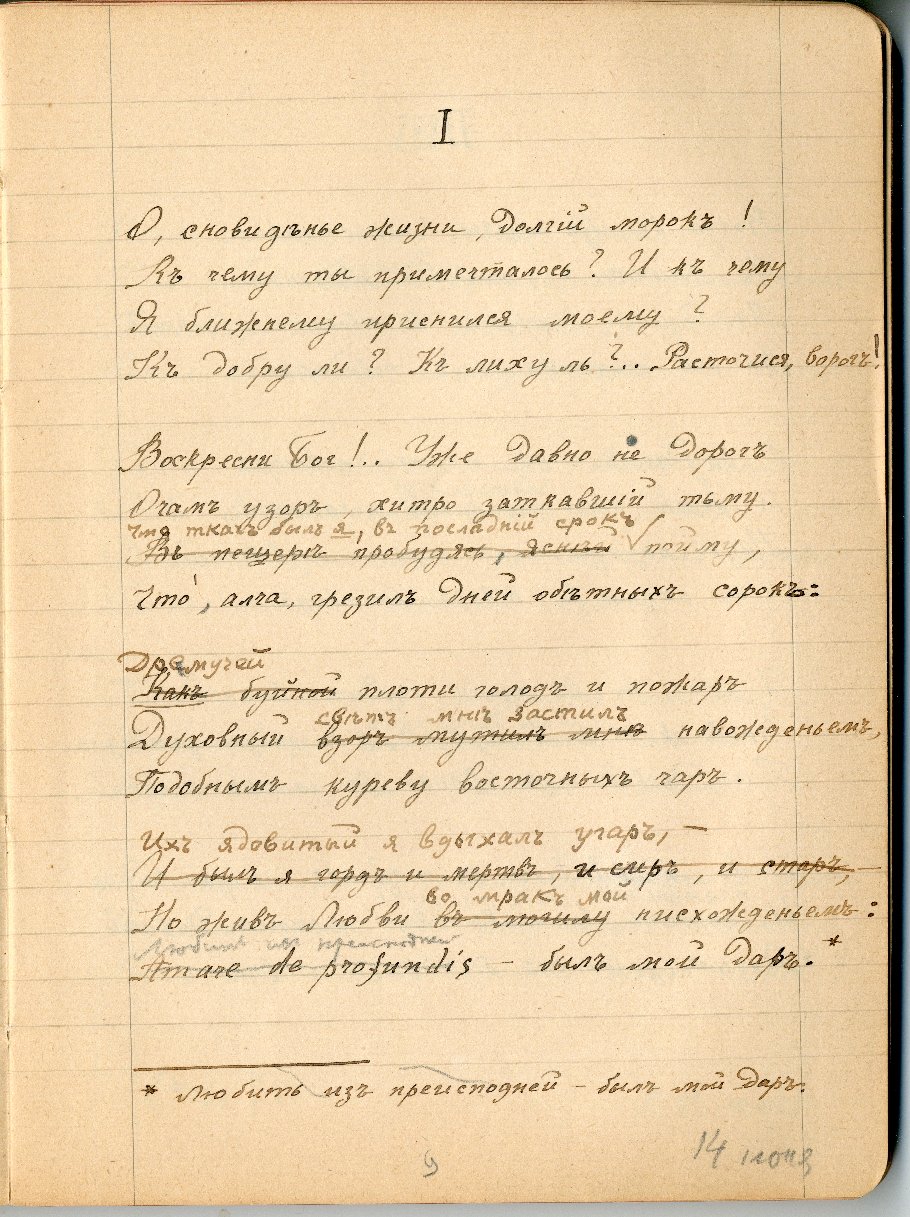 I
О, сновидѣнье жизни, долгій морокъ!
Къ чему ты примечталось? И къ чему
Я ближнему приснился моему?
Къ добру ли? Къ лиху ль?.. Расточися, ворогъ!
Воскресни Бог!.. Уже давно не дорогъ
Очамъ узоръ, хитро заткавшій тьму.
Что ткачъ былъ я, въ послѣдній срокъ
Въ пещерѣ пробудясь, ясный пойму,
Что́, алча, грезилъ дней обѣтныхъ сорокъ:
Дремучей
Какъ буйной плоти голодъ и пожаръ
свѣтъ мнѣ застилъ
Духовный взоръ мутилъ мнѣ навожденьемъ,
Подобнымъ куреву восточныхъ чаръ.
Ихъ ядовитый я вдыхалъ угаръ, —
И былъ я гордъ и мертвъ, и сиръ, и старъ, —
во мракъ мой
Но живъ Любви въ могилу нисхожденьемъ:
Любить из преисподней
Amare de profundis – былъ мой даръ.*
* Любить изъ преисподней – былъ мой даръ.
9
14 июня